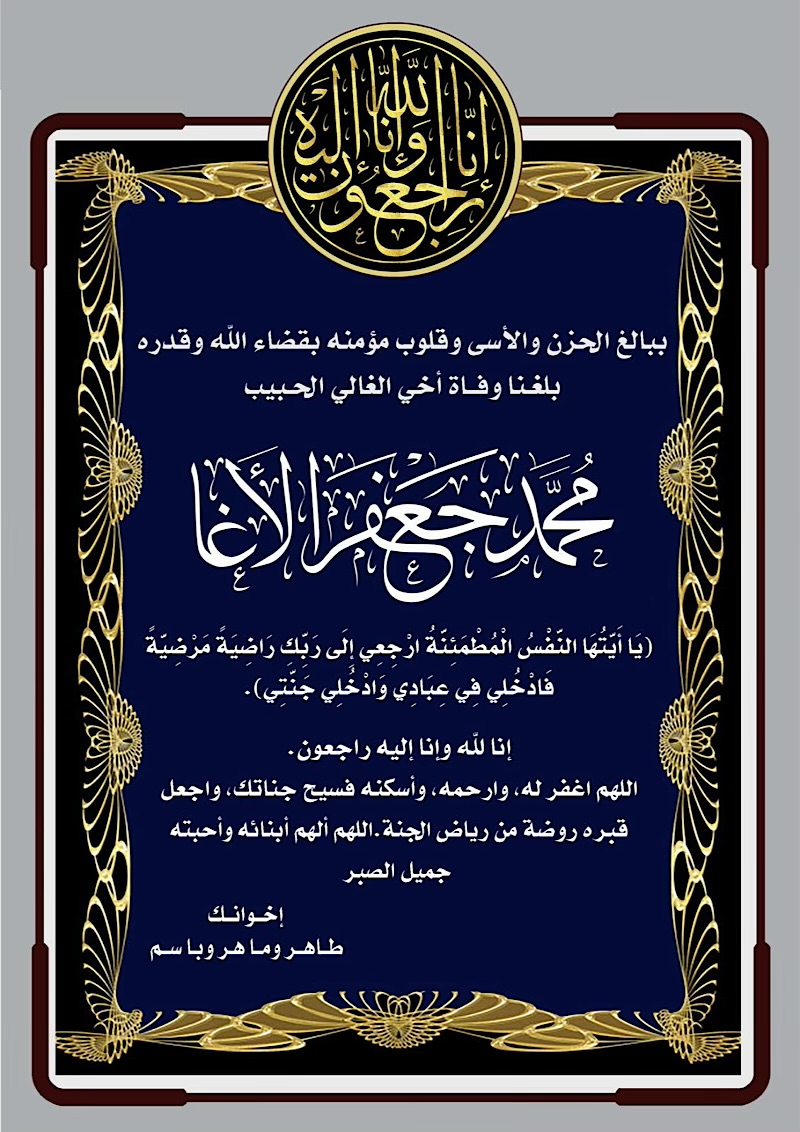 إنا لله وإنا إليه راجعون
ببالغ الحزن والأسى وقلوب مؤمنه بقضاء الله وقدره
بلغنا وفاة أخي الغالي الحبيب
مُحمَّد جَعفَر الأغا
(يَا أَيَّتُهَا النَّفْسُ الْمُطْمَئِنَّةُ ارْجِعِي إِلَى رَبِّكِ رَاضِيَةً مَرْضِيَّةً
فَادْخُلِي فِي عِبَادِي وَادْخُلِي جَنَّتِي).
إنا لله وإنا إليه راجعون.
اللهم اغفر له، وارحمه، وأسكنه فسيح جناتك، واجعل
قبره روضة من رياض الجنة.اللهم ألهم أبنائه وأحبته
جميل الصبر
إخوانك
طاهر وماهر وباسم